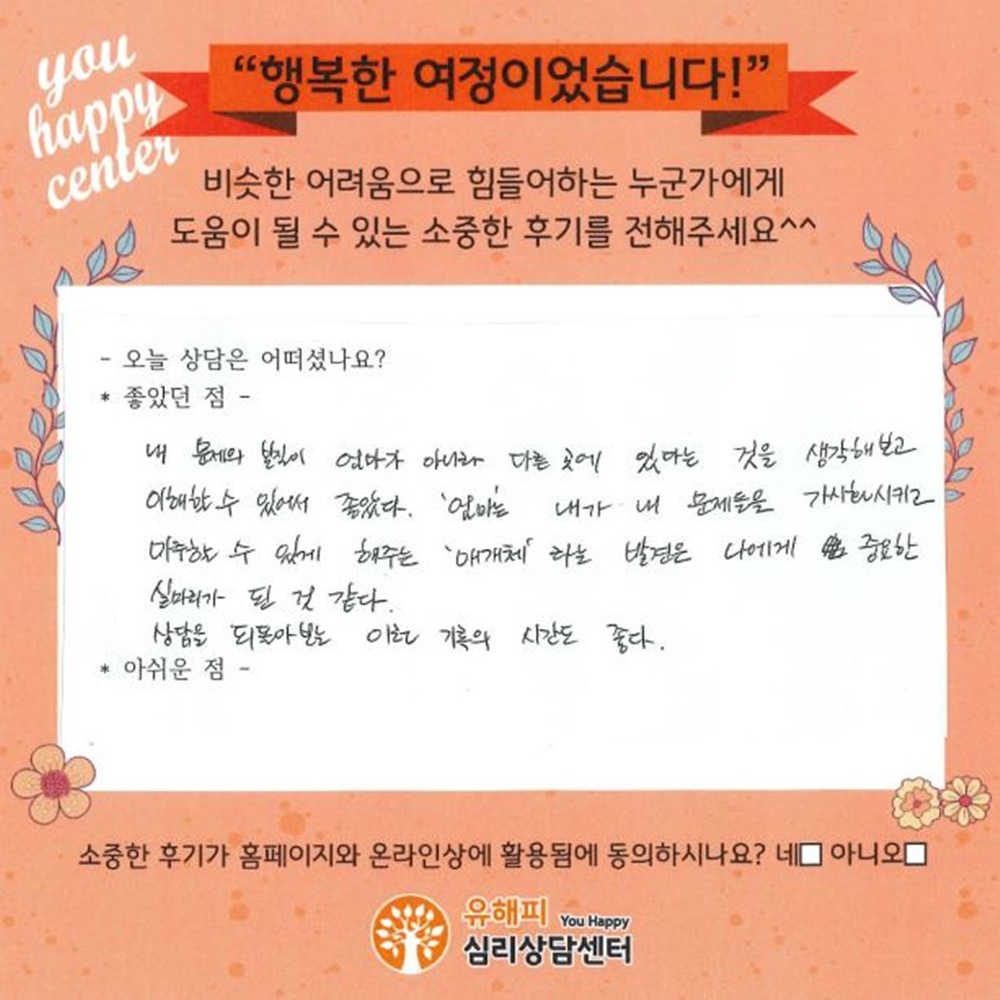 you
happy
center
“행복한 여정이었습니다!”
비슷한 어려움으로 힘들어하는 누군가에게
도움이 될 수 있는 소중한 후기를 전해주세요^^
- 오늘 상담은 어떠셨나요?
* 좋았던 점 -
내 문제의 본질이 엄마가 아니라 다른 곳에 있다는 것을 생각해보고
이해할 수 있어서 좋았다. '엄마'는 내가 내 문제들을 가시화시키고
마주할 수 있게 해주는 '매개체' 라는 발견은 나에게 중요한
실마리가 된 것 같다.
상담을 되돌아보는 이런 기록의 시간도 좋다.
* 아쉬운 점 -
소중한 후기가 홈페이지와 온라인상에 활용됨에 동의하시나요? 네□ 아니오□
유해피 You Happy
심리상담센터